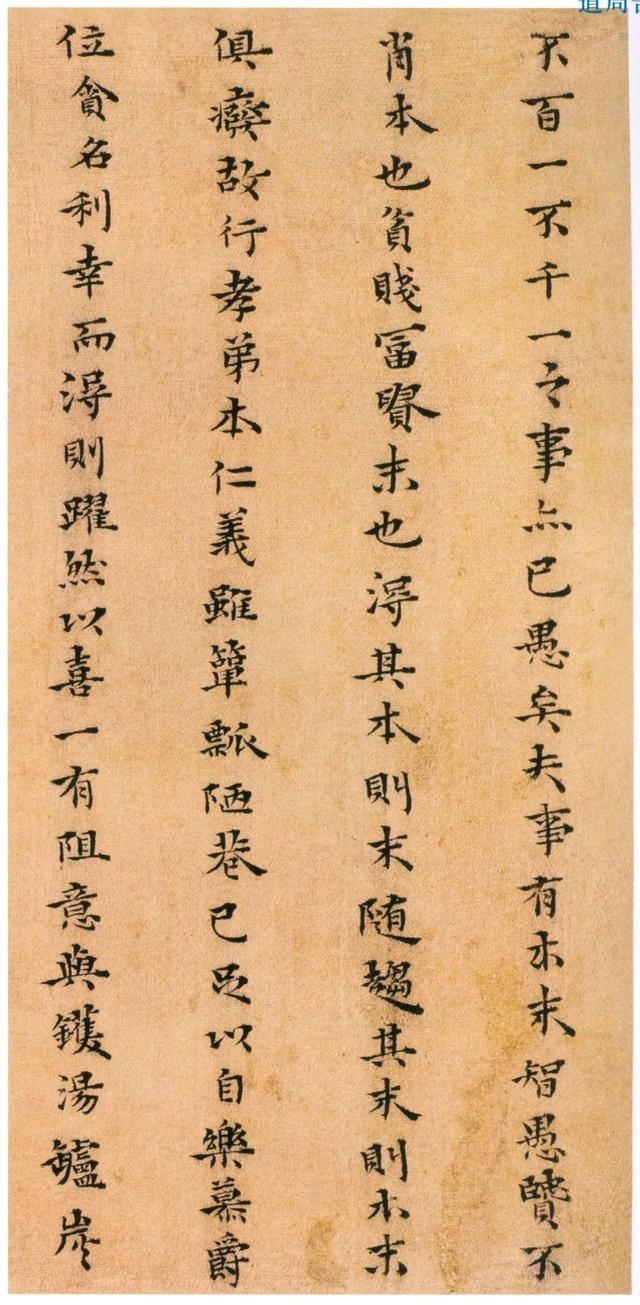 不百一不千一之事亦已愚矣夫事有本末智愚賢不
肖本也貧賤富貴末也得其本則末随趨其末則本末
俱癈故行孝弟本仁義雖簞瓢陋巷已足以自樂慕爵
位貪名利幸而得則躍然以喜一有阻意與鑊湯鑪炭